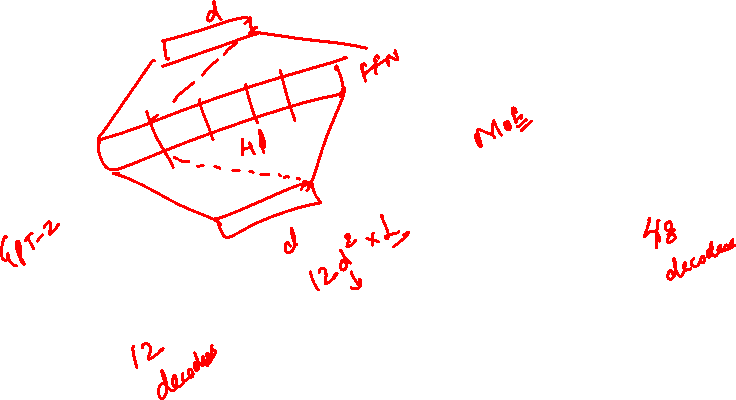 d
FFN
4d
MoE
GPT-2
d
12d² × L
48
decoders
12
decoders